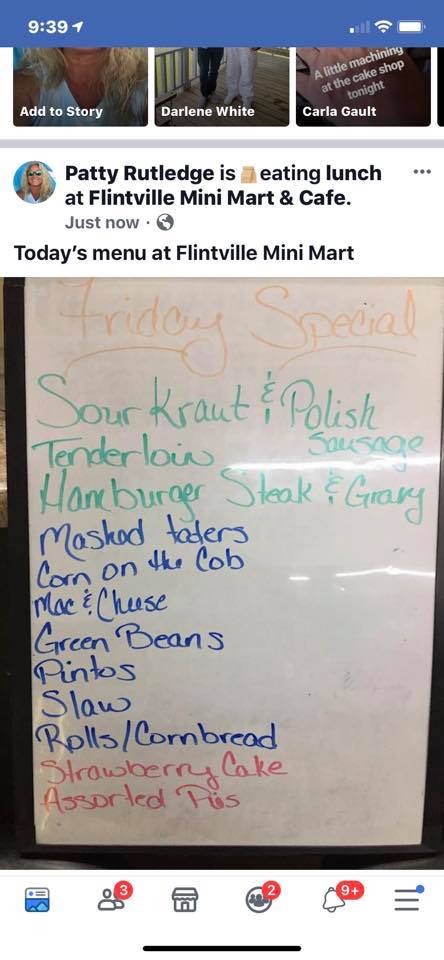 9:39
A little machining
at the cake shop
tonight
Add to Story
Darlene White
Carla Gault
Patty Rutledge is eating lunch
at Flintville Mini Mart & Cafe.
Just now ·
Today's menu at Flintville Mini Mart
Friday Special
Sour Kraut & Polish
Sausage
Tenderloin
Hamburger Steak & Gravy
Mashed taters
Corn on the Cob
Mac & Cheese
Green Beans
Pintos
Slaw
Rolls/Cornbread
Strawberry Cake
Assorted Pies
3
2
9+